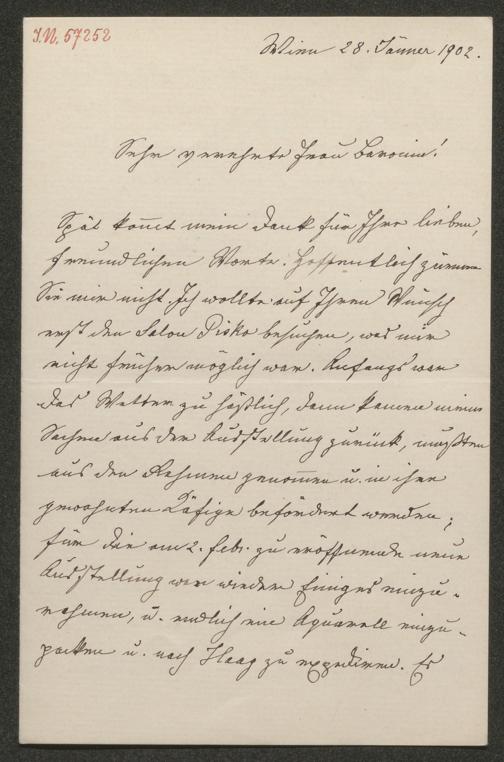 I.N. 57252
Wien 28. Jänner 1902.
Sehr verehrte Frau Baronin!
Spät kom̅t mein Dank für Ihre lieben,
freundlichen Worte. Hoffentlich zürnen
Sie mir nicht. Ich wollte auf Ihren Wunsch
erst den Salon Pisko besuchen, was mir
nicht früher möglich war. Anfangs war
das Wetter zu häßlich, dann kamen meine
Sachen aus der Ausstellung zurück, mußten
aus den Rahmen genom̅en u. in ihre
gewohnten Käfige befördert werden;
für die am 2. Febr. zu eröffnende neue
Ausstellung war wieder Einiges einzu-
rahmen, u. endlich ein Aquarell einzu-
packen u. nach Haag zu expediren. Es